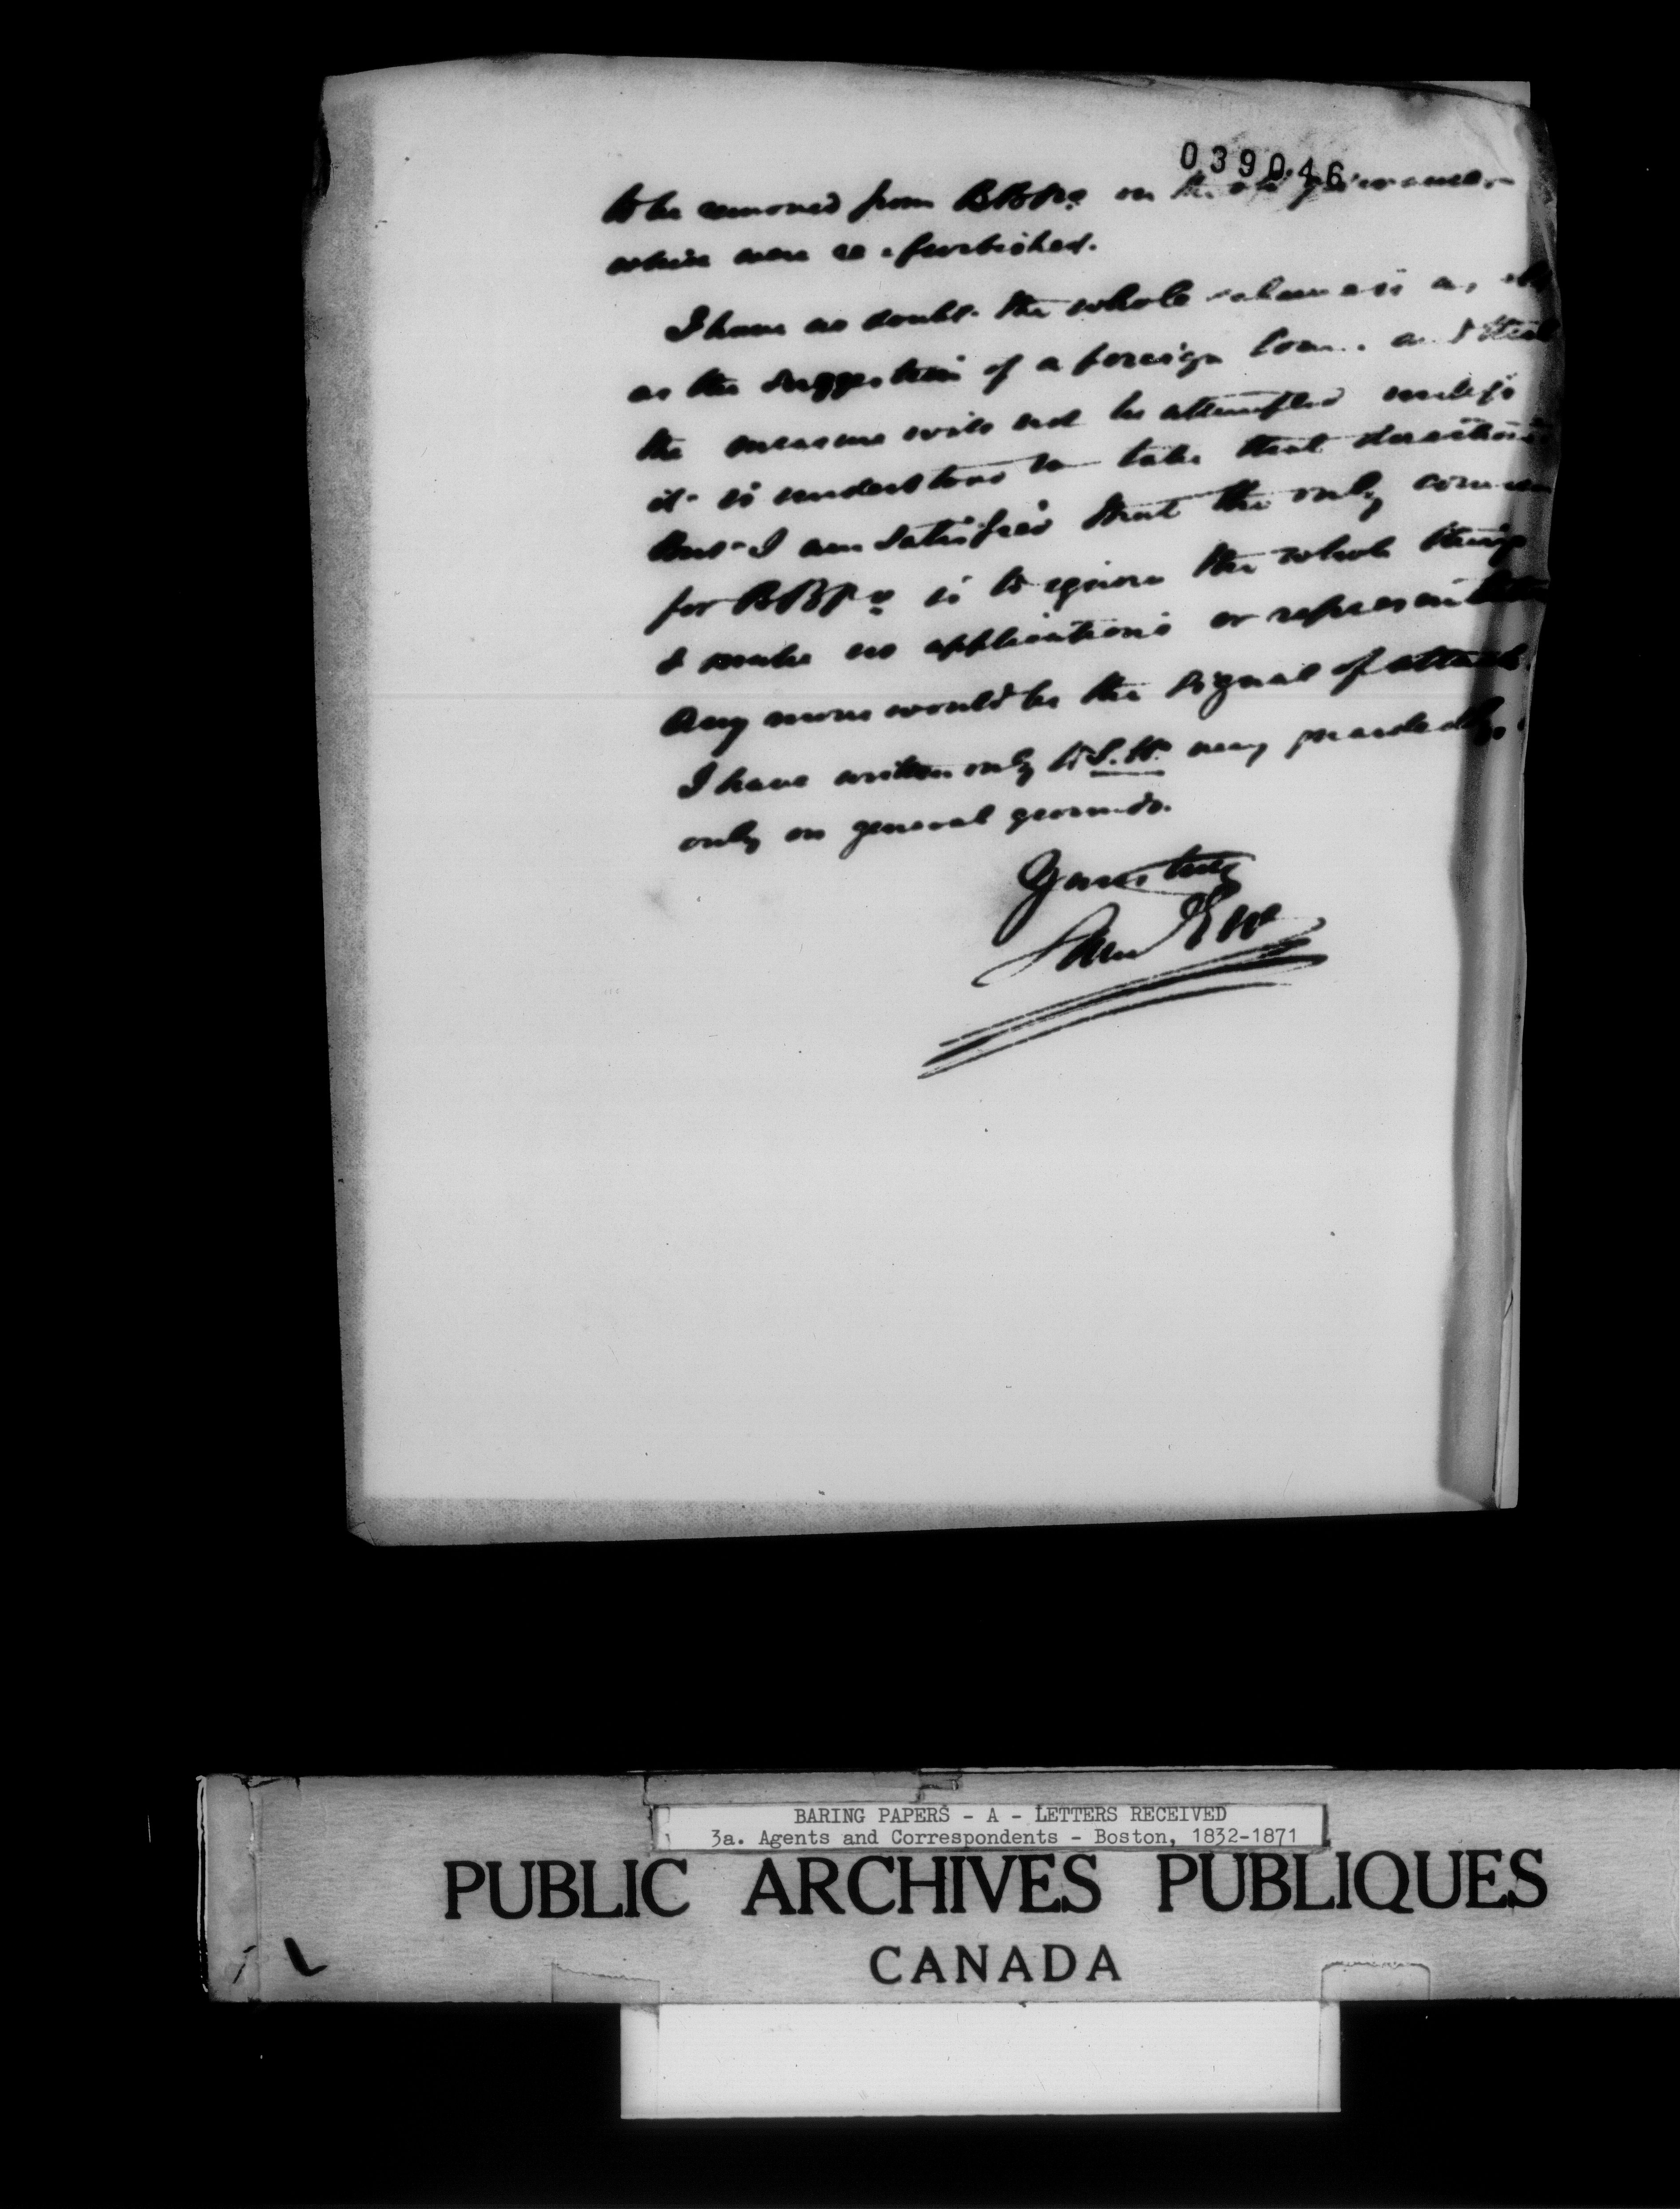 039046
to be removed from BB&Co on the old grievances
which were re-furbished.
I have no doubt the whole scheme is as
as the suggestion of a foreign loan. and that
the measure will not be attempted unless
it is understood to take that direction
But I am satisfied that the only course
for BB&Co is to ignore the whole thing
& make no applications or representations
Any move would be the signal of attack.
I have written only to S.H. very guardedly,
only on general grounds.
Yours truly
Sam G W
BARING PAPERS - A - LETTERS RECEIVED
3a. Agents and Correspondents - Boston, 1832-1871
PUBLIC ARCHIVES PUBLIQUES
CANADA